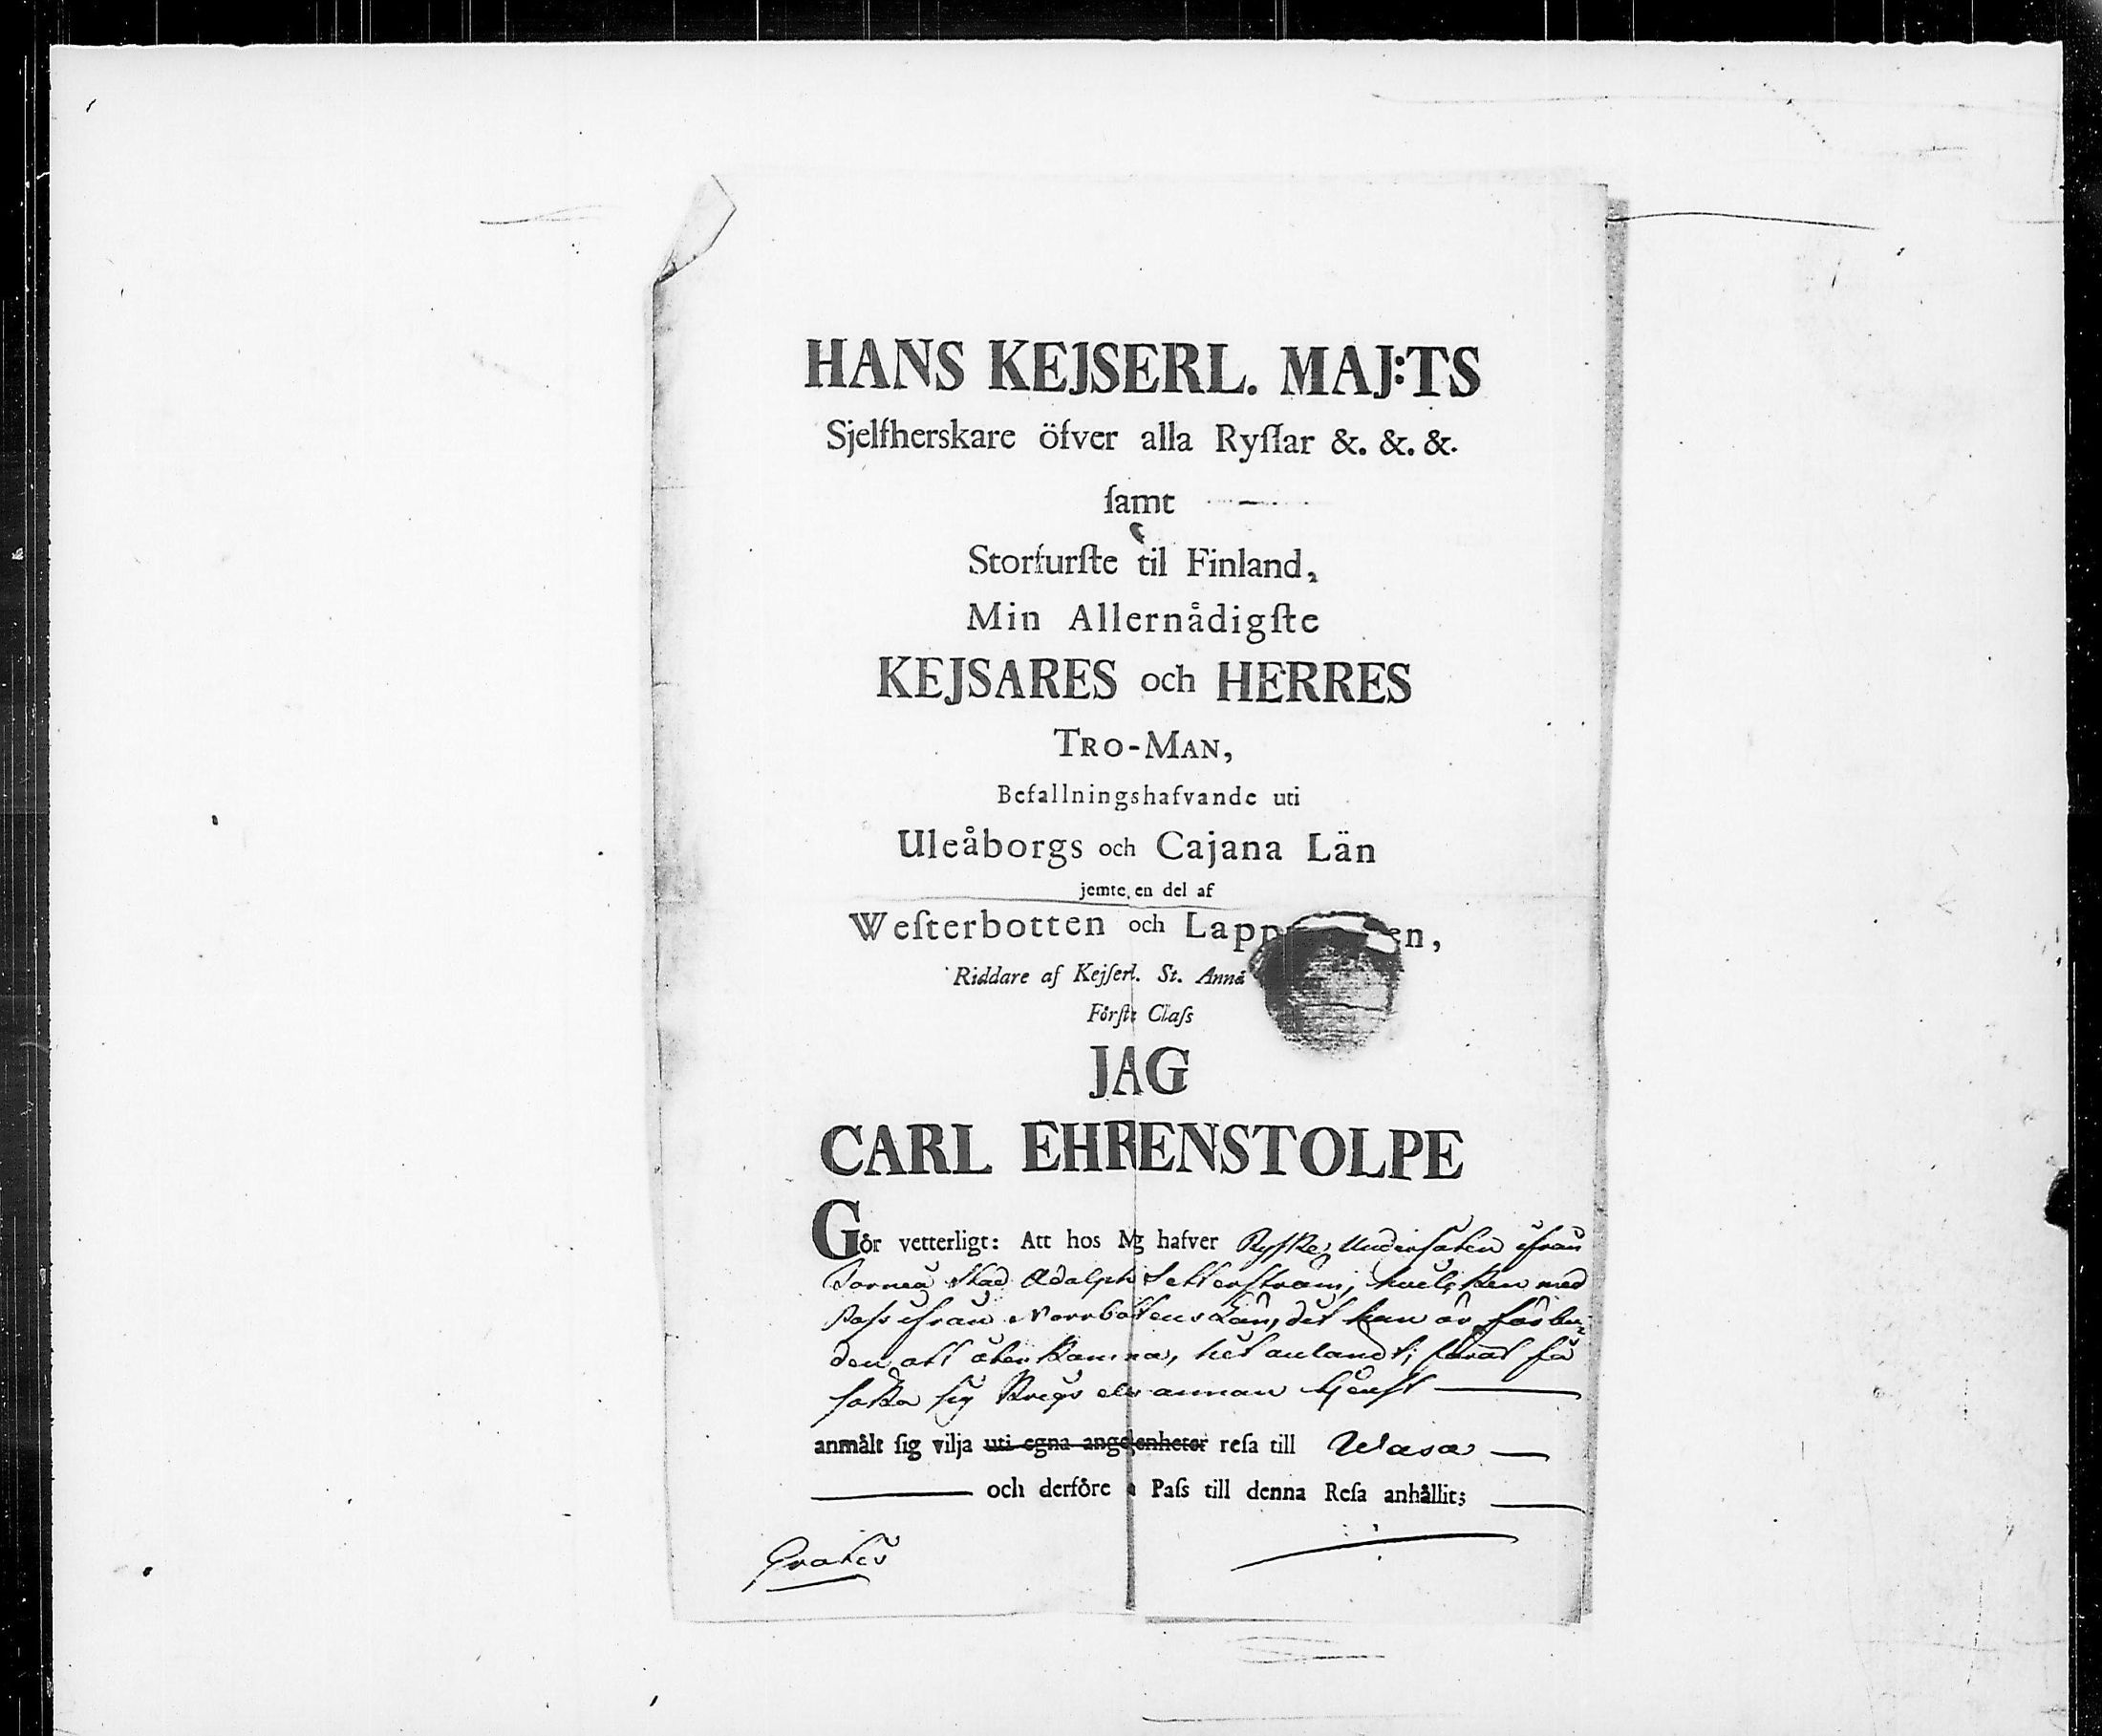 HANS KEJSERL. MAJ:TS
Sjelfherskare öfver alla Ryſſar &. &. &.
ſamt
Storfurſte til Finland,
Min Allernådigſte
KEJSARES och HERRES
TRO-MAN,
Befallningshafvande uti
Uleåborgs och Cajana Län
jemte en del af
Weſterbotten och
Riddare af Kejſerl. St. Annä
Förſta Claſs
JAG
CARL EHRENSTOLPE
Gör vetterligt: Att hos Mig hafver Ryſke Underſåten ifrån
Torneå Stad Adolph Setterſtröm, hvilken med
Paſs ifrån Norrbottens Län, det han är förbu-
den att återkomma, hit anländt; förat få
ſöka ſig Krigs eller annan tjenſt
anmält ſig vilja uti egna angelenheter reſa till Wasa
och derföre Paſs till denna Reſa anhållit;
Gratis